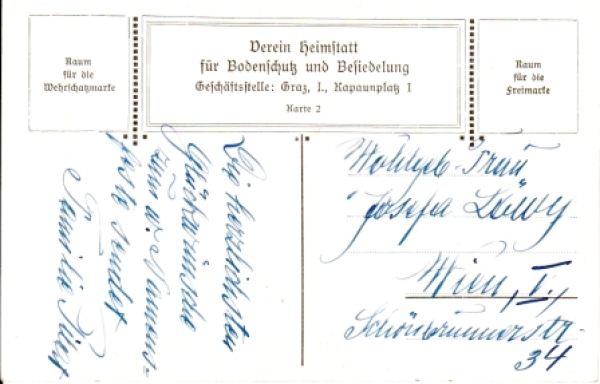 Raum
für die
Wehrschatzmarke
Verein Heimstatt
für Bodenschutz und Besiedelung
Geschäftsstelle: Graz, I., Kapaunplatz 1
Karte 2
Raum
für die
Freimarke
Die herzlichsten
Glückwünsche
zum w. Namens-
feste sendet
Familie
Wohlgeb. Frau
Josefa Löwy
Wien, V.,
Schönbrunnerstr.
34